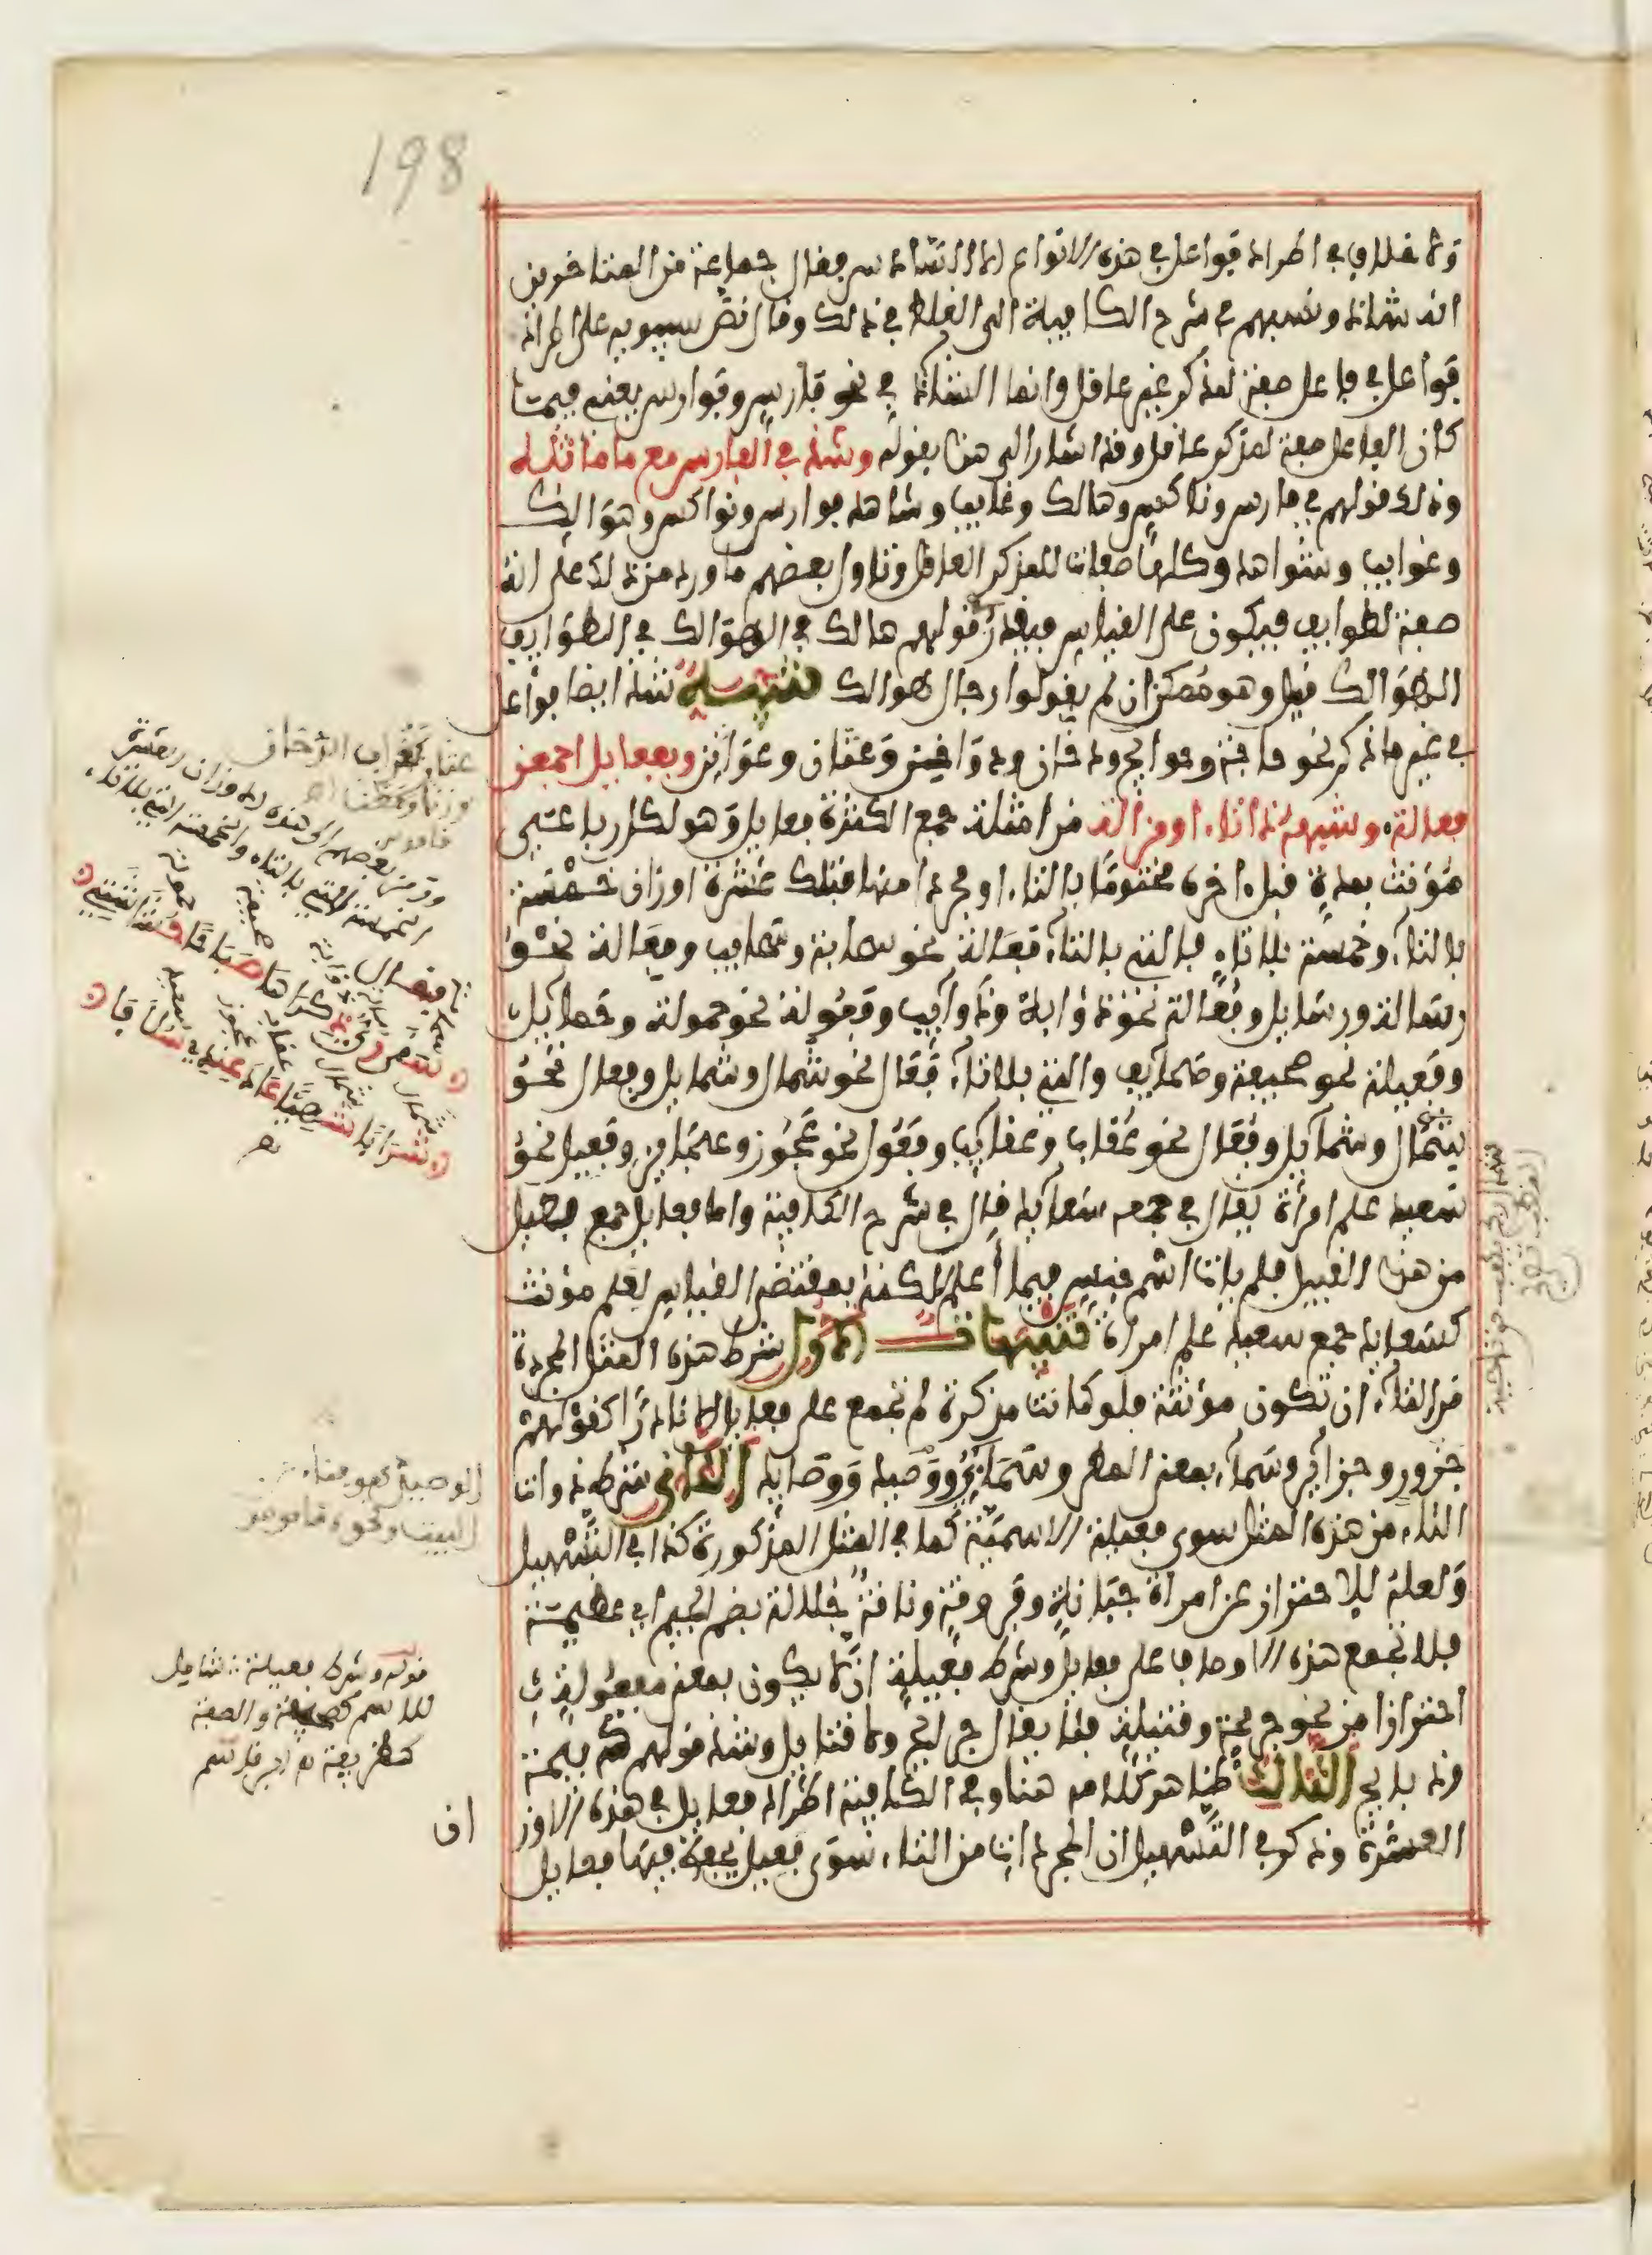 198
ولا خلاف في اطراد فواعل في هذه الانواع الا السادس فقال جماعة من المتاخرين
انه شاذ ونسبهم في شرح الكافية الى الغلط في ذلك وقال نص سيبويه على اطراد
فواعل في فاعل صفة لمذكر غير عاقل وانما الشاذ في نحو فارس وفوارس يعني فيما
كان الفاعل صفة لمذكر عاقل وقد اشار الى هذا بقوله وشذ في الفارس مع ما ماثله
وذلك قولهم في فارس وناكس وهالك وغايب وشاهد فوارس ونواكس وهوالك
وغوايب وشواهد وكلها صفات للمذكر العاقل وتاول بعضهم ما ورد من ذلك على انه
صفة لطوايف فيكون على القياس فيقدر قولهم هالك في الهوالك في الطوايف
الهوالك قيل وهو ممكن ان لم يقولوا رجال هوالك تنبيه شذ ايضا فواعل
في غير ما ذكر نحو حاجة وحوايج ودخان ودواخن وعثان وعواثن وبفعايل اجمعن
فعاله وشبهه ذا تاء او مزاله من امثلة جمع الكثرة فعايل وهو لكل رباعي
مؤنث بمدة قبل اخره مختوما بالتاء او مجردا منها فتلك عشرة اوزان خمسة
بالتاء وخمسة بلا تاء فالتي بالتاء فعالة نحو سحابة وسحايب وفعالة نحو
رسالة ورسايل وفعالة نحو ذؤابة وذوآيب وفعولة نحو حمولة وحمآيل
وفعيلة نحو صحيفة وصحآيف والتي بلا تاء فعال نحو شمال وشمايل وفعال نحو
شمال وشمآيل وفعال نحو عقاب وعقآيب وفعول نحو عجوز وعجايز وفعيل نحو
سعيد علم امرأة يقال في جمعه سعآيد قال في شرح الكافية واما فعايل جمع فعيل
من هذا القبيل فلم يات اسم جنس فيما أعلم لكنه بمقتضى القياس لعلم مؤنث
كسعايد جمع سعيد علم امراة تنبيهات الاول شرط هذه المثل المجردة
من التاء ان تكون مؤنثة فلو كانت مذكرة لم تجمع على فعايل الا نادرا كقولهم
جزور وجزآير وسمآء بمعنى المطر وسمآيي ووصيد ووصايد الثاني شرط ذوات
التاء من هذه المثل سوى فعيلة الاسمية كما في المثل المذكورة كذا في التسهيل
ولعله للاحتراز عن امراة جبانة وفروقة وناقة جلالة بضم الجيم اي عظيمة
فلا تجمع هذه الاوصاف على فعايل وشرط فعيلة ان لا يكون بمعنى مفعولة
احترازا من نحو جريحة وقتيلة فلا يقال جرايج ولا قتايل وشذ قولهم ذبيحة
وذبايح الثالث ظاهر كلامه هنا وفي الكافية اطراد فعايل في هذه الاوز
العشرة وذكر في التسهيل ان المجردات من التاء سوى فعيل يحفظ فيها فعايل
ان
عثان كغراب الدخان
وزنا ومعنى اهـ
قاموس
وقد نظم بعضهم هذه الاوزان العشرة
الخمسة التي بالتاء والخمسة التي بلا تاء
فقال
الوصيد هو فناء
البيت ونحوه قاموس
قوله وشرط فعيلة شامل
للاسم كصحيفة والصفة
كظريفة اهـ ابن قاسم